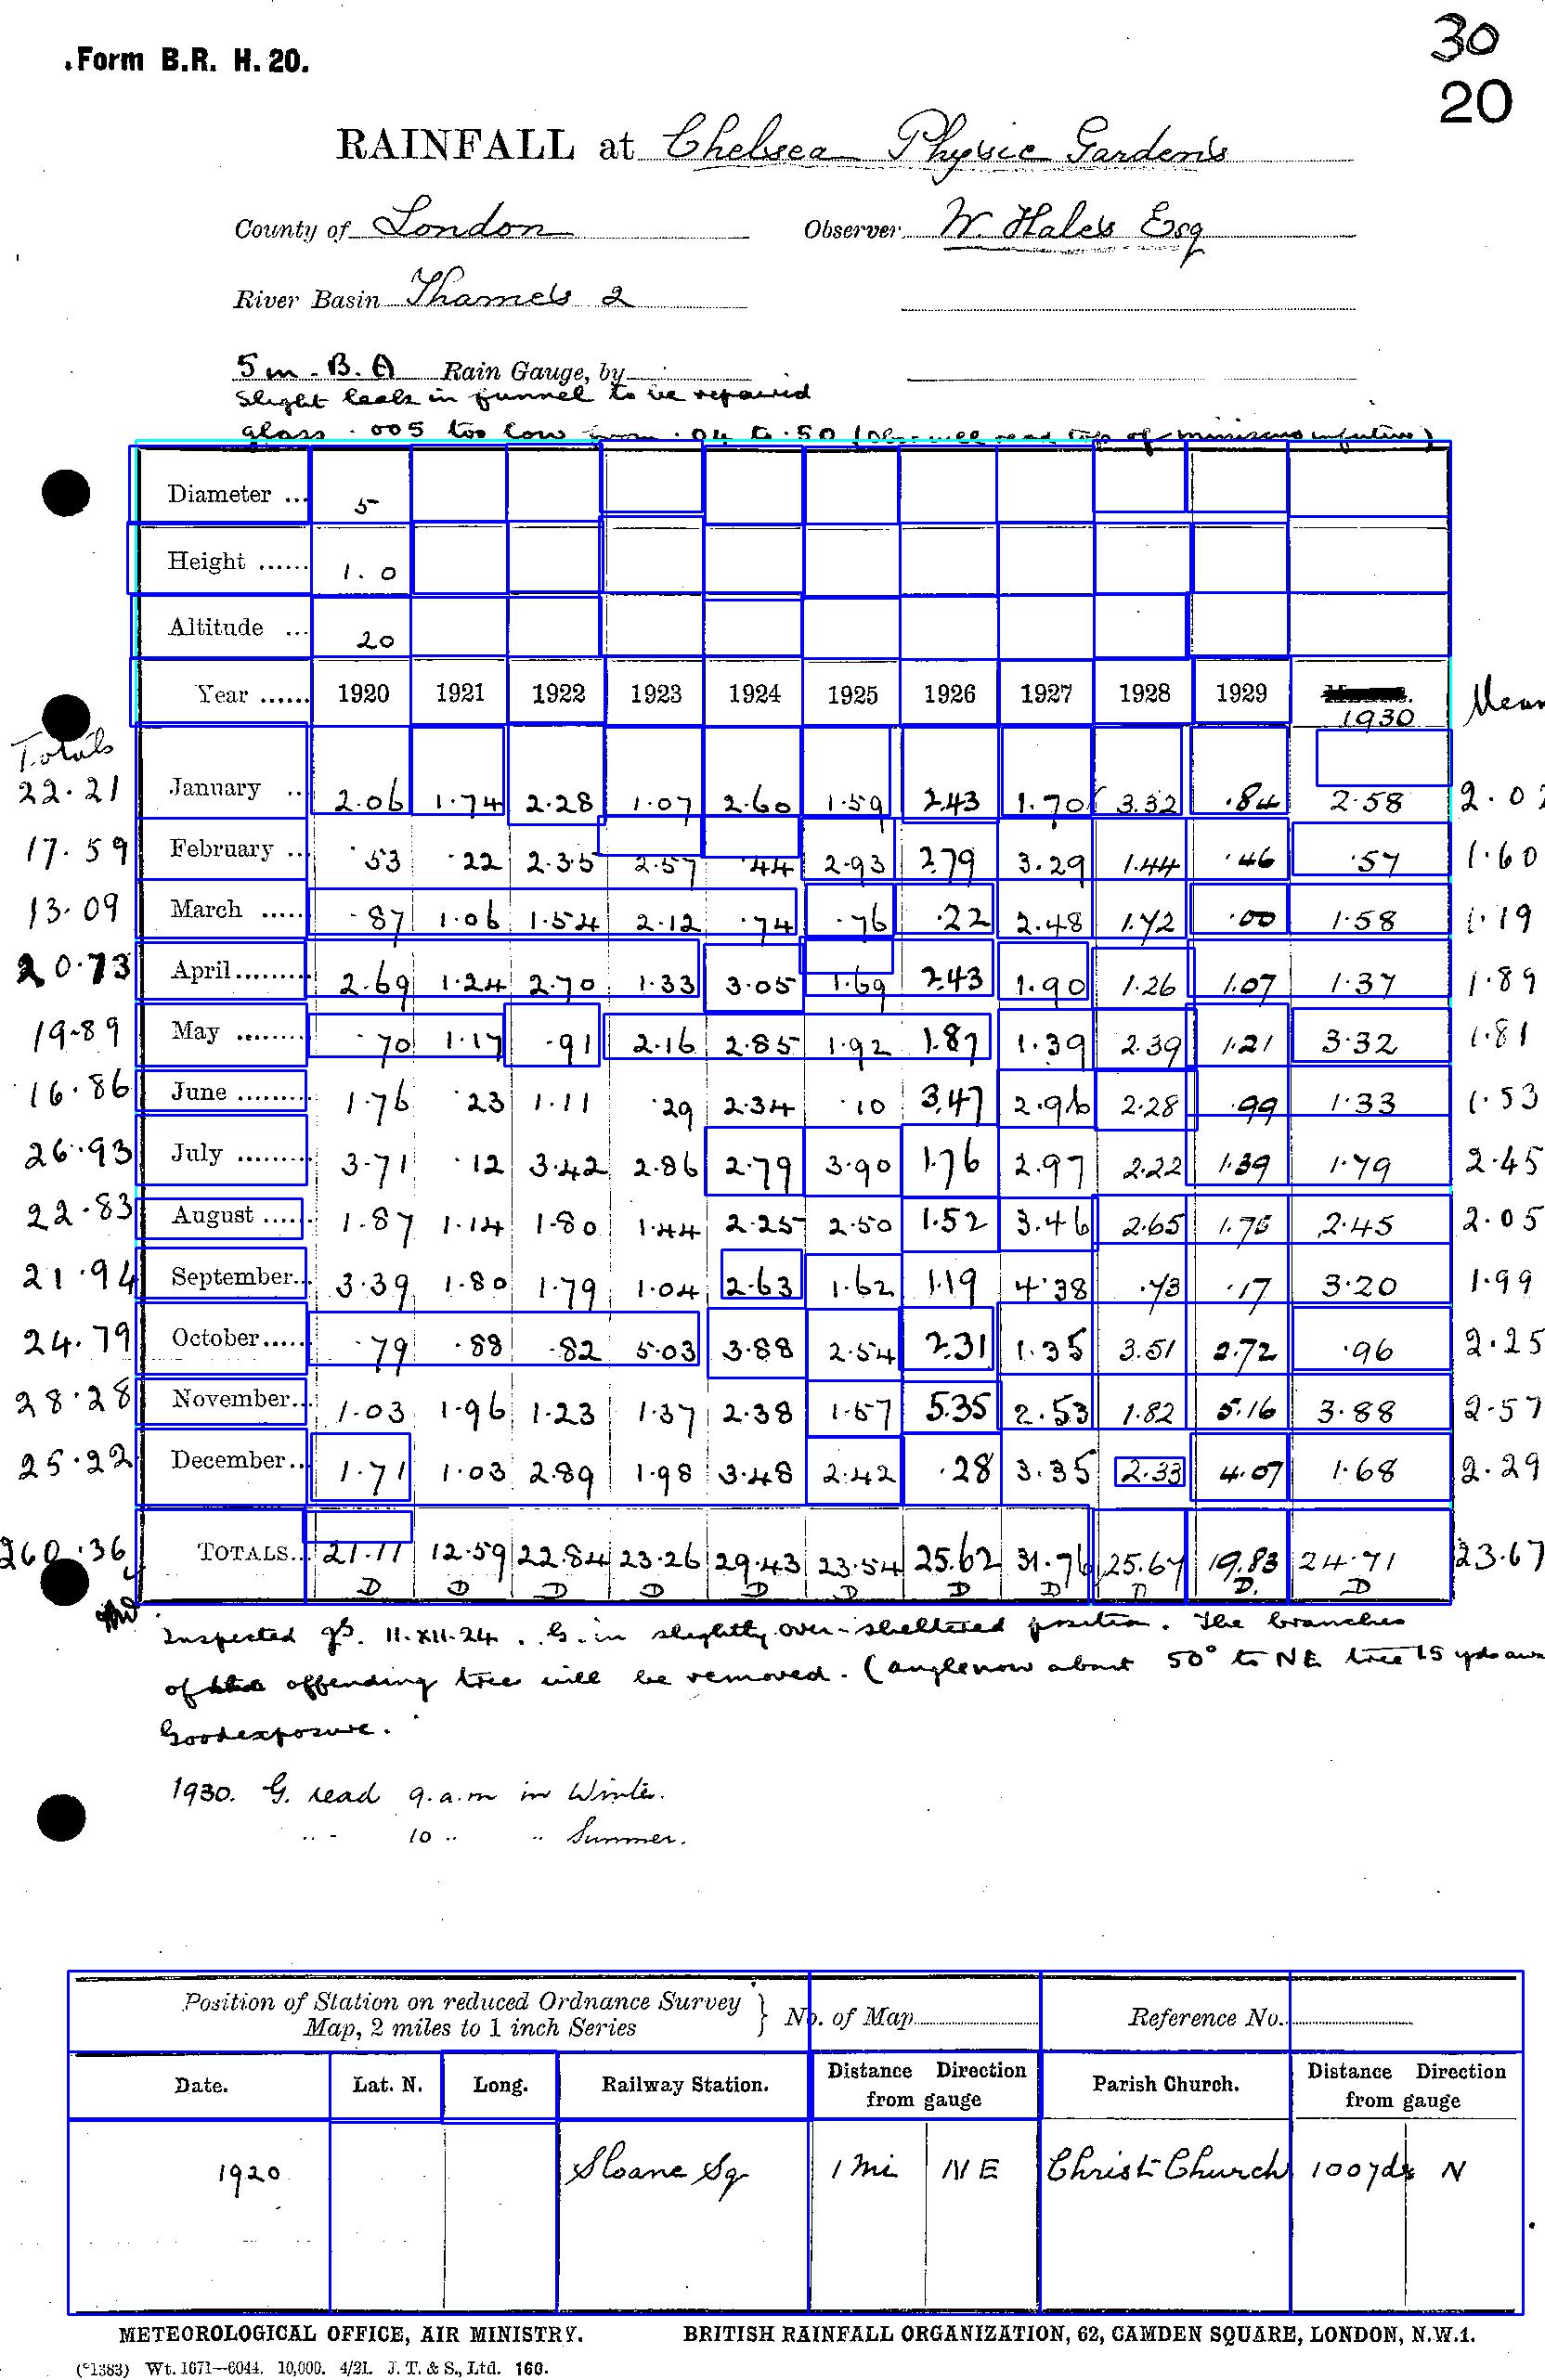 30
20
Form B.R. H. 20.
RAINFALL at Chelsea Physic Gardens
County of London Observer W. Hales Esq
River Basin Thames 2
5 in. B. A Rain Gauge, by
Slight leak in funnel to be repaired
glass .005 too low from .04 to .50 (Obs: will read top of in future)
Diameter ... 5
Height ...... 1.0
Altitude ... 20
Year ...... 1920 1921 1922 1923 1924 1925 1926 1927 1928 1929 1930 Mean
Totals
22.21 January .. 2.06 1.74 2.28 1.07 2.60 1.59 2.43 1.70 3.32 .84 2.58 2.02
17.59 February .. .53 .22 2.35 2.57 .44 2.93 2.79 3.29 1.44 .46 .57 1.60
13.09 March ..... .87 1.06 1.54 2.12 .74 .76 .22 2.48 1.72 .00 1.58 1.19
20.73 April ......... 2.69 1.24 2.70 1.33 3.05 1.69 2.43 1.90 1.26 1.07 1.37 1.89
19.89 May ......... .70 1.17 .91 2.16 2.85 1.92 1.87 1.39 2.39 1.21 3.32 1.81
16.86 June ......... 1.76 .23 1.11 .29 2.34 .10 3.47 2.96 2.28 .99 1.33 1.53
26.93 July ......... 3.71 .12 3.42 2.86 2.79 3.90 1.76 2.97 2.22 1.39 1.79 2.45
22.83 August ...... 1.87 1.14 1.80 1.44 2.25 2.50 1.52 3.46 2.65 1.75 2.45 2.05
21.94 September... 3.39 1.80 1.79 1.04 2.63 1.62 1.19 4.38 .73 .17 3.20 1.99
24.79 October...... .79 .88 .82 5.03 3.88 2.54 2.31 1.35 3.51 2.72 .96 2.25
28.28 November... 1.03 1.96 1.23 1.37 2.38 1.57 5.35 2.53 1.82 5.16 3.88 2.57
25.22 December... 1.71 1.03 2.89 1.98 3.48 2.42 .28 3.35 2.33 4.07 1.68 2.29
260.36 TOTALS... 21.11 12.59 22.84 23.26 29.43 23.54 25.62 31.76 25.67 19.83 24.71 23.67
D D D D D D D D D D. D
Inspected 11.XII.24. G. in slightly over-sheltered position. The branches
of offending tree will be removed. (angle now about 50° to NE tree 15 yds
Good exposure.
1930. G. read 9.a.m in Winter.
.. - 10 .. .. Summer.
Position of Station on reduced Ordnance Survey
Map, 2 miles to 1 inch Series } No. of Map Reference No.
Date. Lat. N. Long. Railway Station. Distance Direction from gauge Parish Church. Distance Direction from gauge
1920 Sloane Sq 1 mi NE Christ Church 100 yds N
METEOROLOGICAL OFFICE, AIR MINISTRY. BRITISH RAINFALL ORGANIZATION, 62, CAMDEN SQUARE, LONDON, N.W.1.
(*1383) Wt. 1671—6044. 10,000. 4/21. J. T. & S., Ltd. 160.